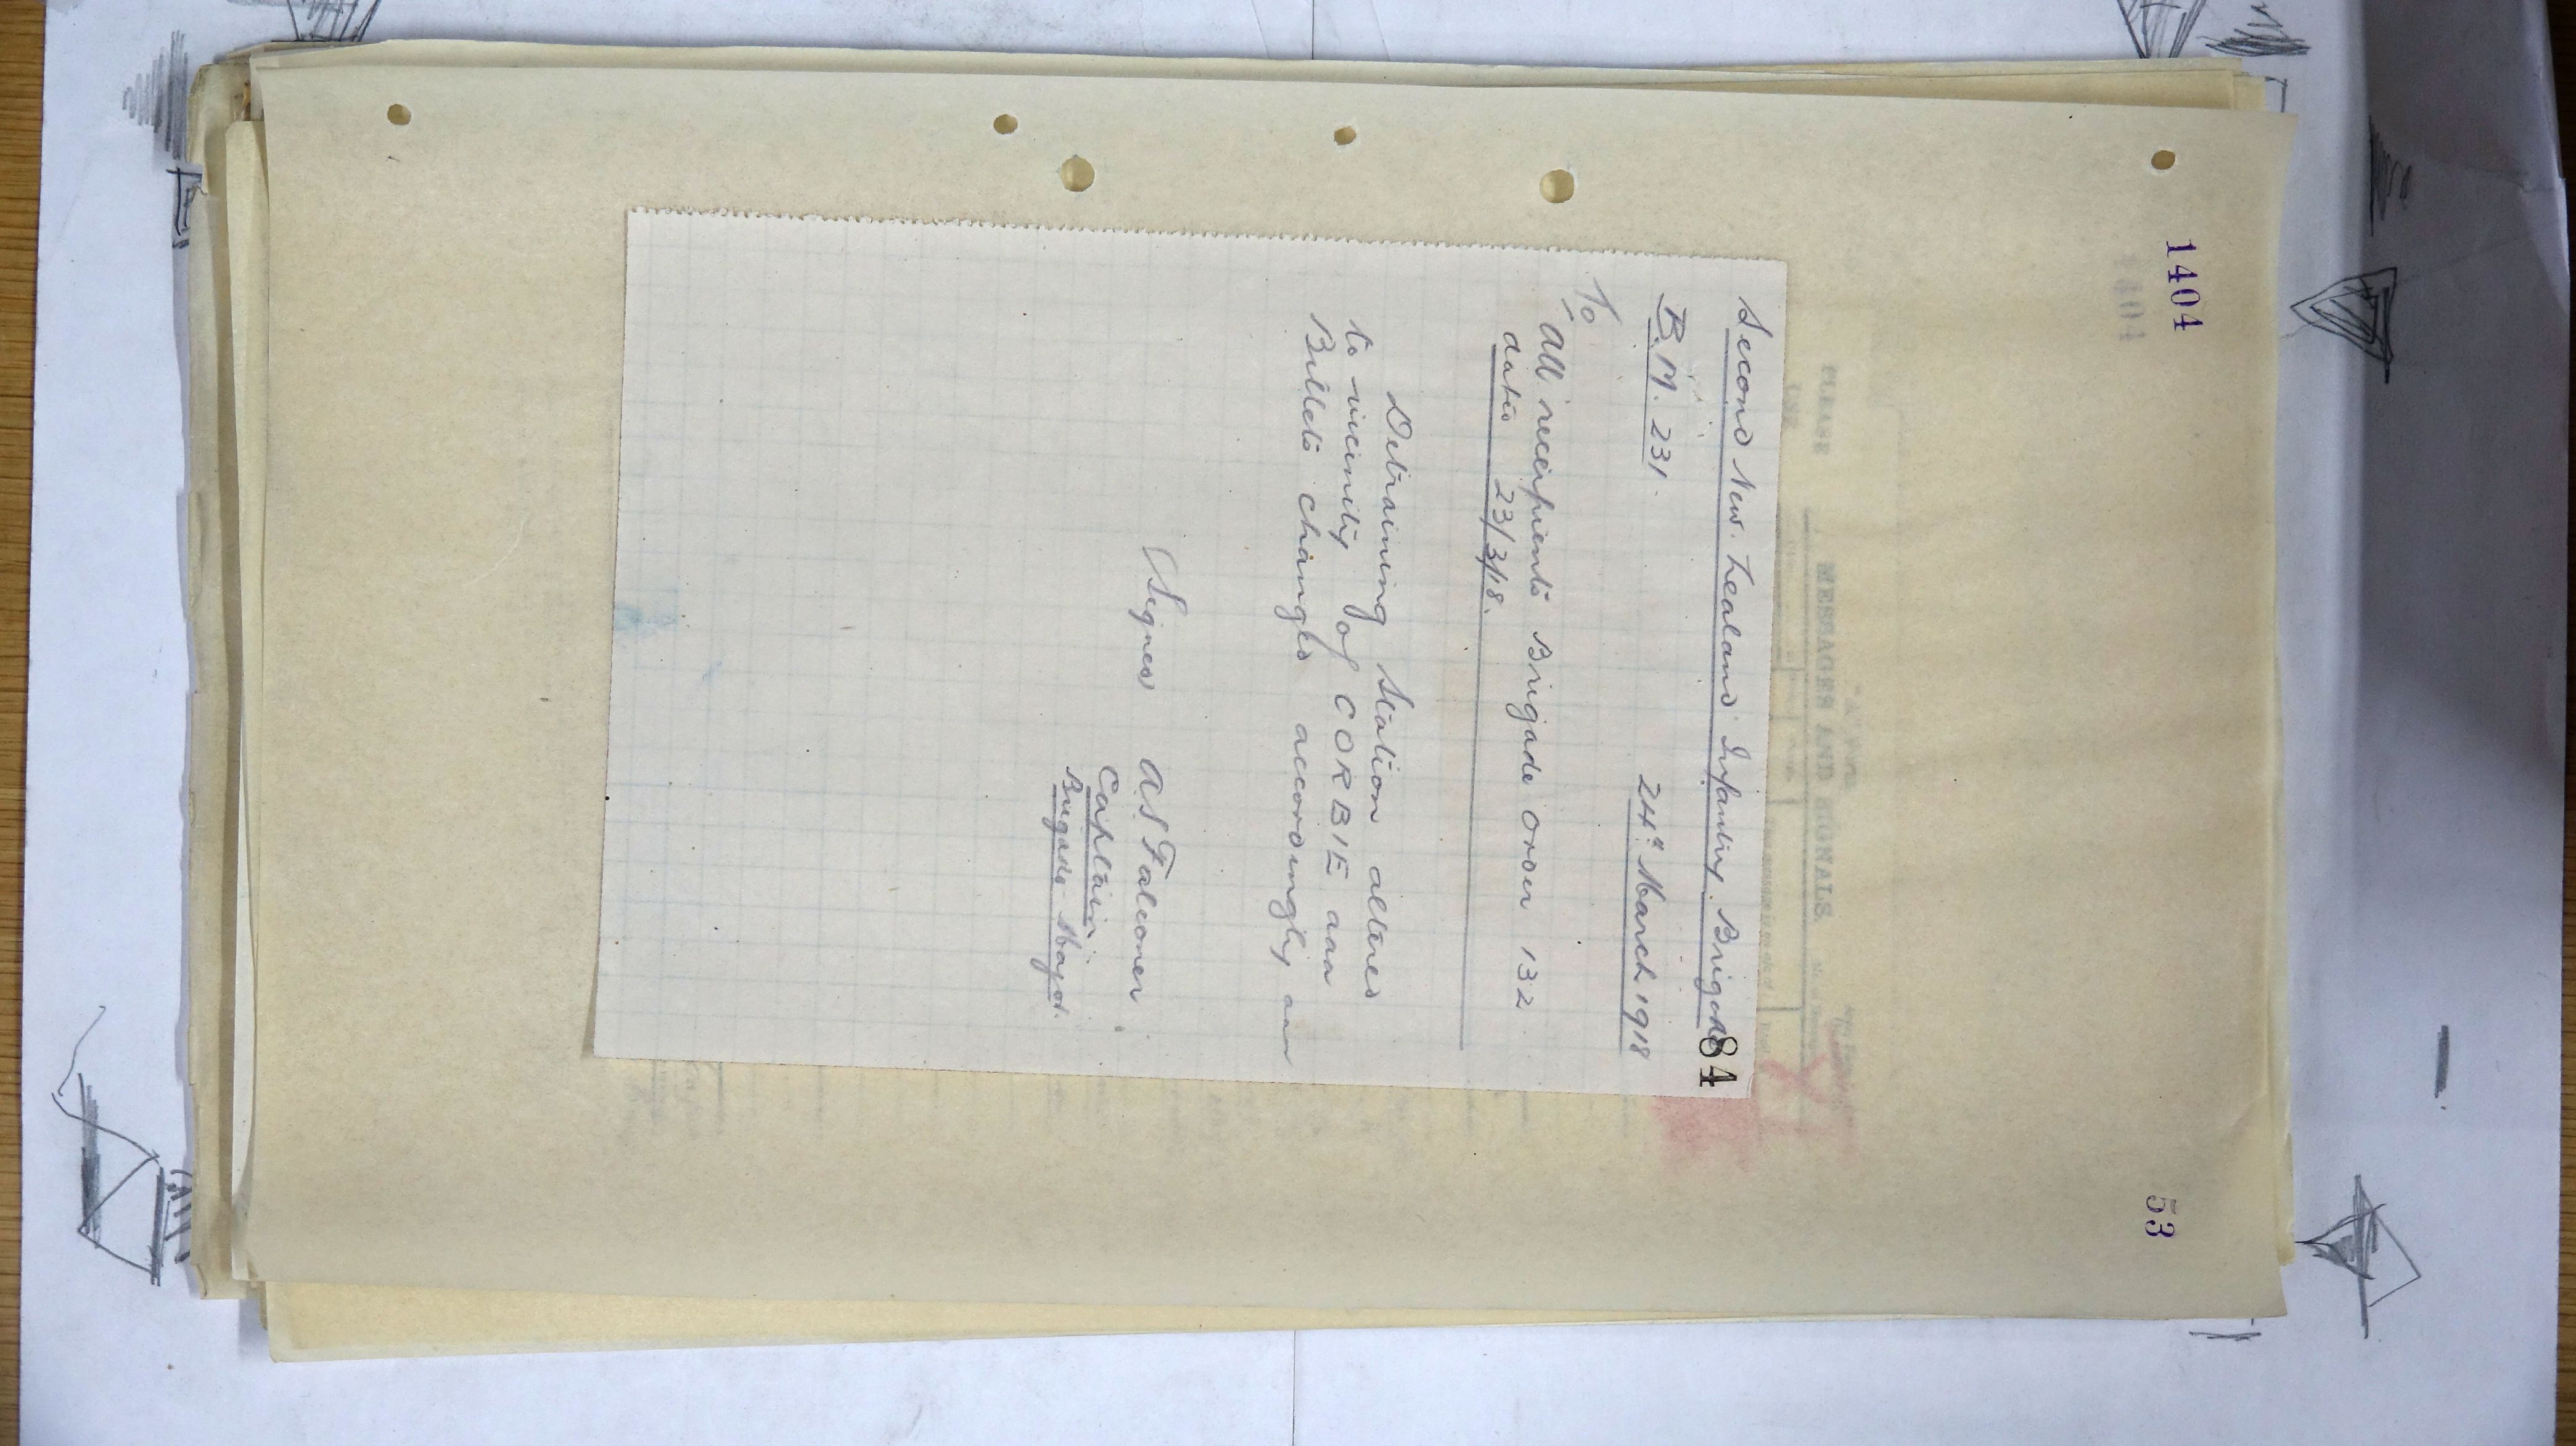 1404
53
84
Second New Zealand Infantry Brigade
B.M. 231.
24th March 1918
To
All recipients Brigade Order 132
dated 23/3/18.
Detraining Station altered
to vicinity of CORBIE aaa
Billets changed accordingly aaa
(Signed A S Falconer.
Captain.
Brigade Major.
MESSAGES AND SIGNALS.